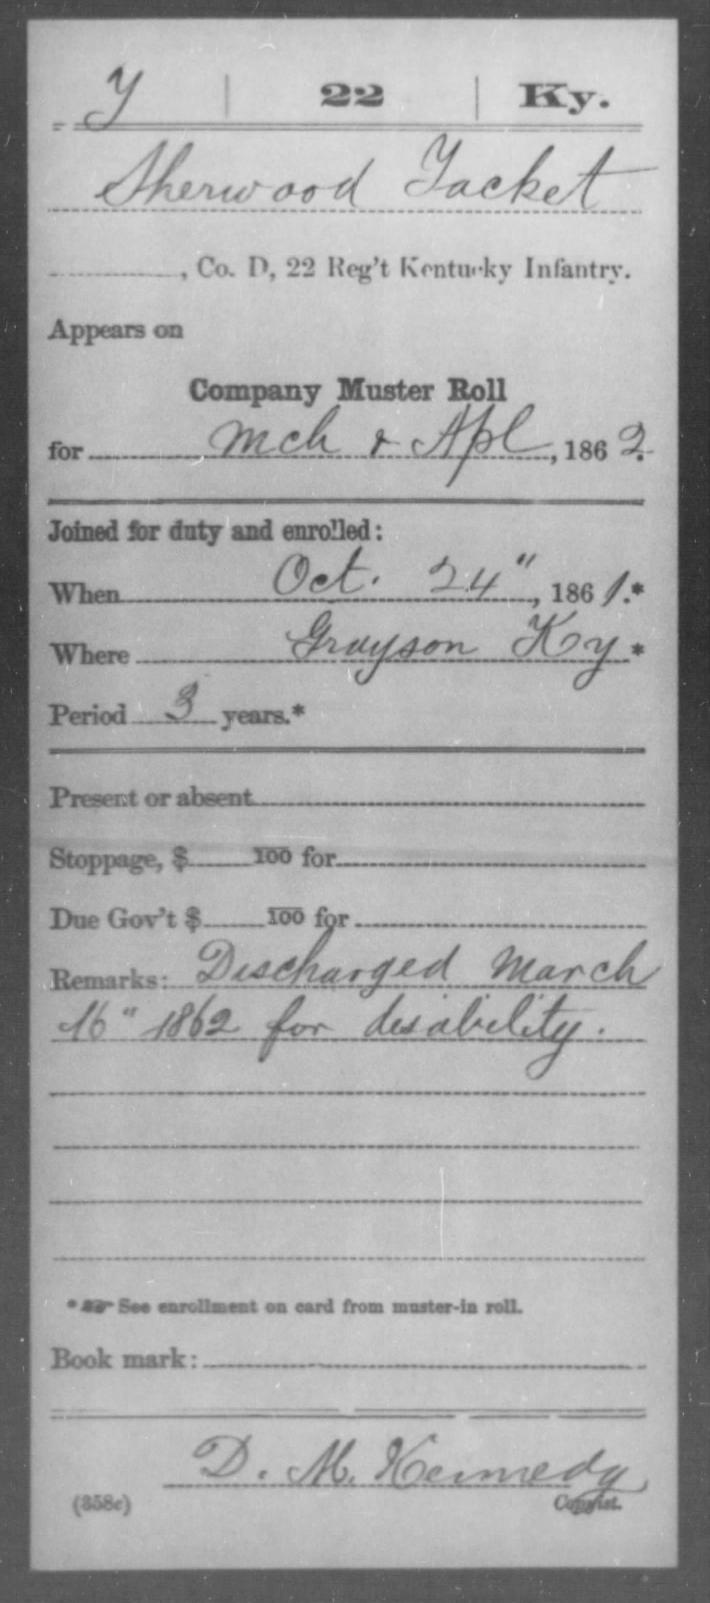 Y | 22 | Ky.
Sherwood Yacket
, Co. D, 22 Reg't Kentucky Infantry.
Appears on
Company Muster Roll
for Mch & Apl, 1862.
Joined for duty and enrolled:
When Oct. 24", 1861.*
Where Grayson Ky *
Period 3 years.*
Present or absent
Stoppage, $ 100 for
Due Gov't $ 100 for
Remarks: Discharged March
16" 1862 for disability.
* See enrollment on card from muster-in roll.
Book mark:
D. M. Kennedy
(358c) Copyist.